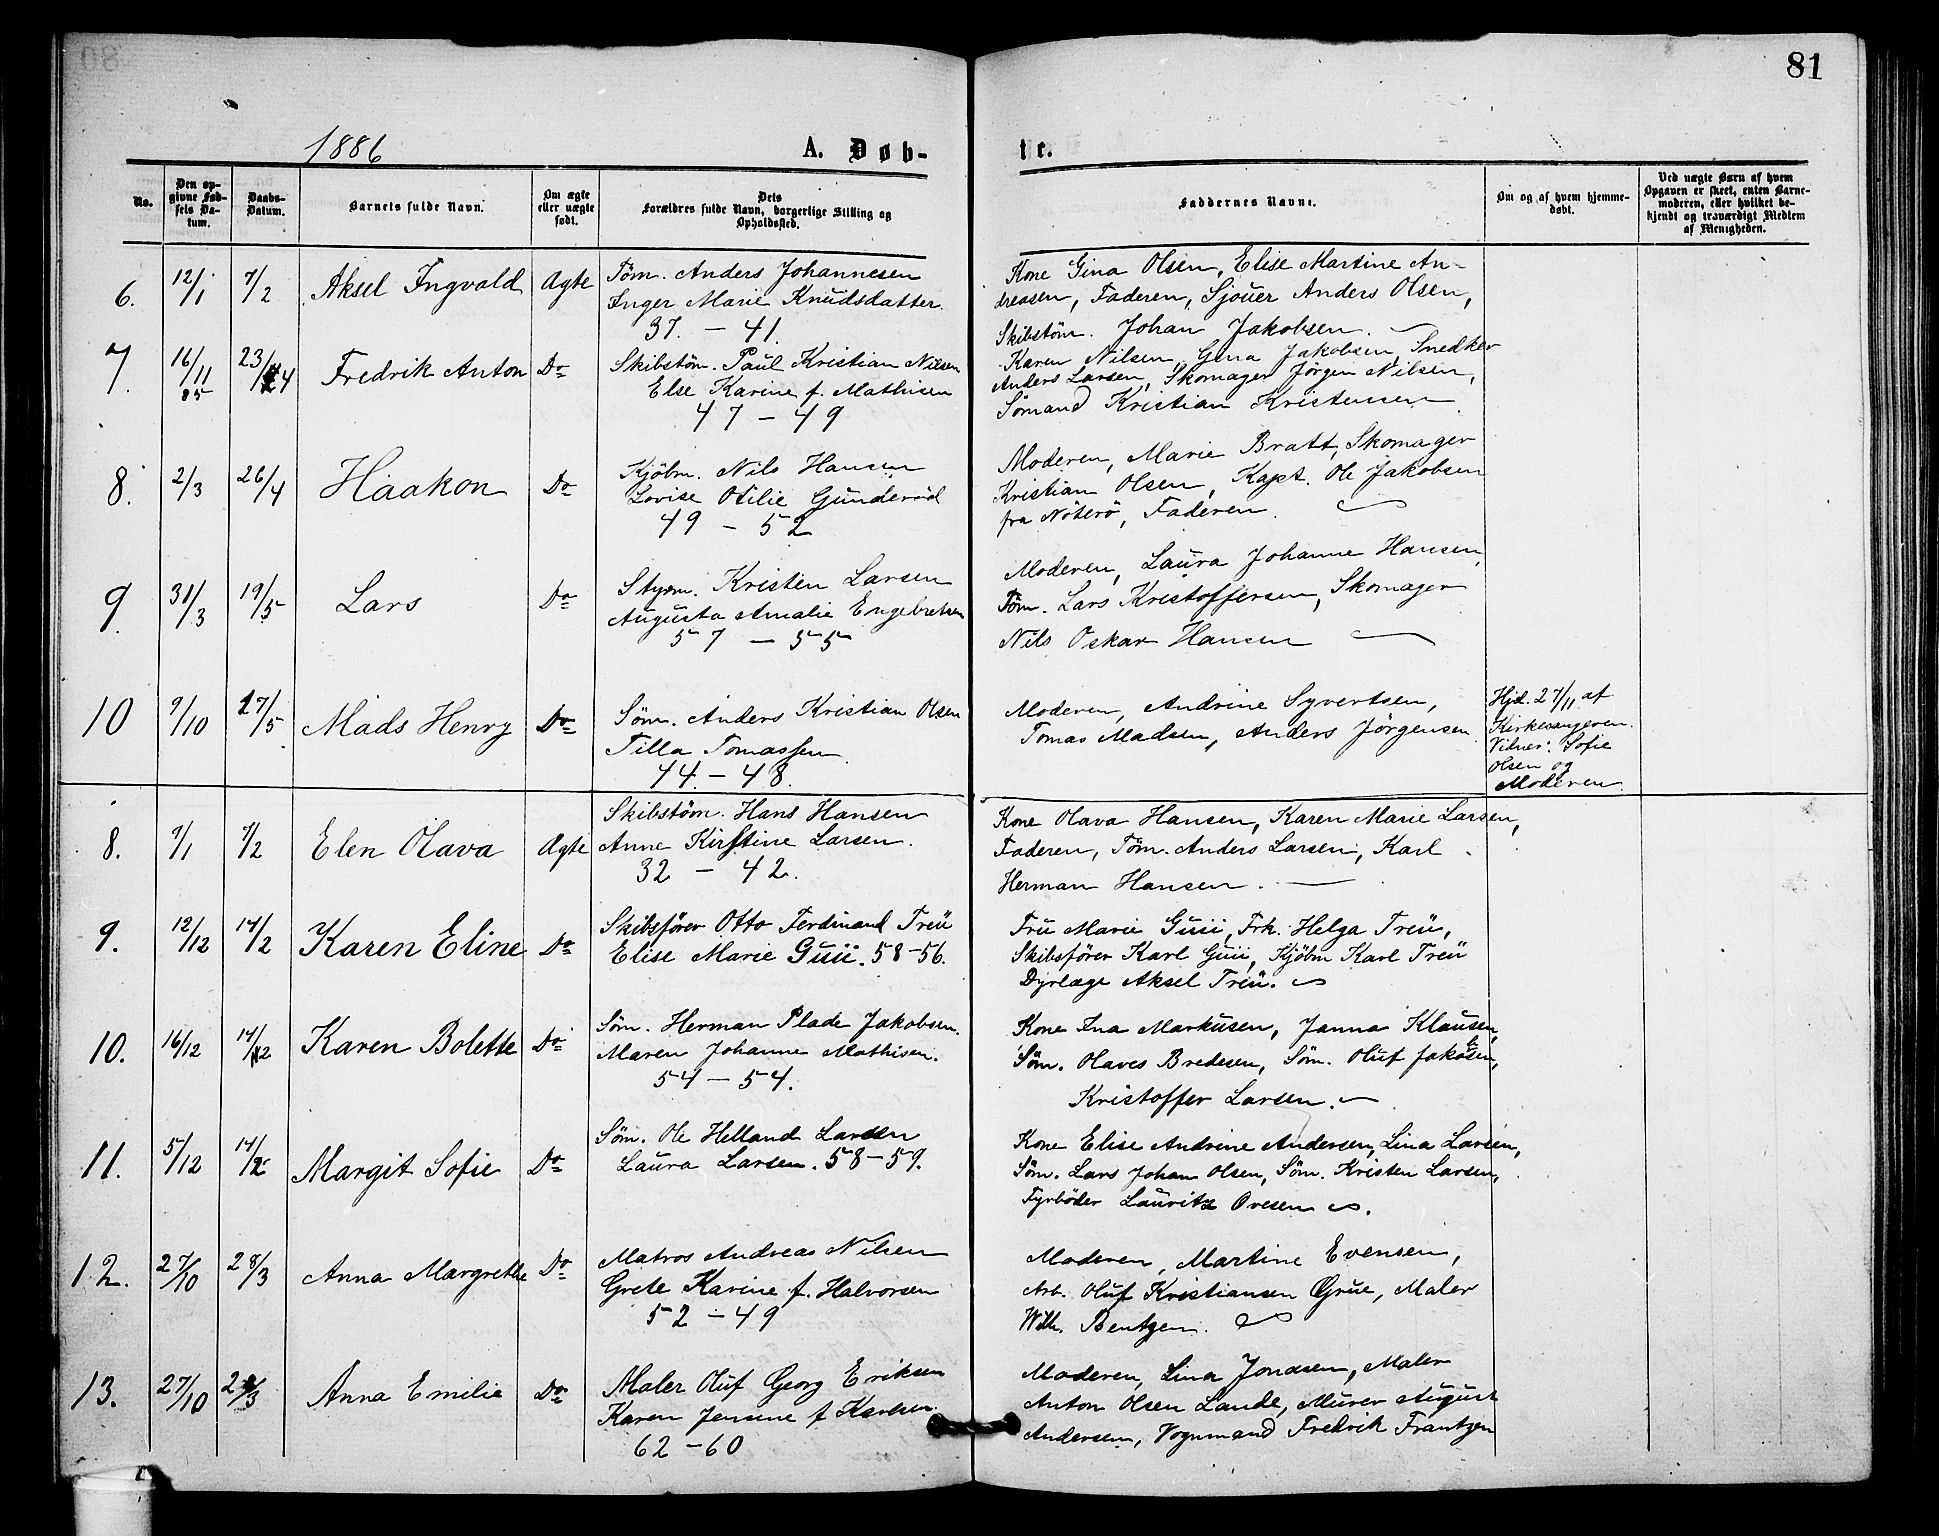 81
1886
A. Døb-
te.
No.
Den op-
givne Fød-
sels Da-
tum.
Daabs-
Datum.
Barnets fulde Navn.
Om ægte
eller uægte
født.
Dets
Forældres fulde Navn, borgerlige Stilling og
Opholdssted.
Faddernes Navne.
Om og af hvem hjemme-
døbt.
Ved uægte Børn af hvem
Opgaven er skeet, enten Barne-
moderen, eller hvilket be-
kjendt og troværdigt Medlem
af Menigheden.
6. 12/1 7/2 Aksel Ingvald Ægte
Töm. Anders Johannesen
Inger Marie Knudsdatter.
37. - 41.
Kone Gina Olsen, Elise Martine An-
dreasen, Faderen, Sjouer Anders Olsen,
Skibstöm. Johan Jakobsen.
7. 16/11 85 23/4 Fredrik Anton Do
Skibstöm. Paul Kristian Nilsen
Else Karine f. Mathisen
47 - 49
Karen Nilsen, Gina Jakobsen, Snedker
Anders Larsen, Skomager Jörgen Nilsen,
Sömand Kristian Kristensen
8. 2/3 26/4 Haakon Do
Kjöbm. Nils Hansen
Lovise Otilie Gunderud
49 - 52
Moderen, Marie Bratt, Skomager
Kristian Olsen, Kapt. Ole Jakobsen
fra Nöterö, Faderen.
9. 31/3 19/5 Lars Do
Styrm. Kristen Larsen
Augusta Amalie Engebretsen
57 - 55
Moderen, Laura Johanne Hansen,
Töm. Lars Kristoffersen, Skomager
Nils Oskar Hansen
10 9/10 27/5 Mads Henry Do
Söm. Anders Kristian Olsen
Tilla Tomassen.
44. - 48.
Moderen, Andrine Syvertsen,
Tomas Madsen, Anders Jörgensen
Hjd. 27/11 af
Kirkesangeren.
Vidner: Sofie
Olsen og
Moderen.
8. 9/1 7/2 Elen Olava Ægte
Skibstöm. Hans Hansen
Anne Kirstine Larsen.
32 - 42.
Kone Olava Hansen, Karen Marie Larsen,
Faderen, Töm. Anders Larsen, Karl
Herman Hansen.
9. 12/12 14/2 Karen Eline Do
Skibsförer Otto Ferdinand Treü
Elise Marie Guii. 58-56.
Fru Marie Guii, Frk. Helga Treü,
Skibsförer Karl Guii, Kjöbm Karl Treü
Dyrlæge Aksel Treü.
10. 16/12 14/2 Karen Bolette Do
Söm. Herman Plade Jakobsen.
Maren Johanne Mathisen.
54 - 54.
Kone Ina Markusen, Janna Klausen,
Söm. Olaves Bredesen, Söm. Oluf Jakobsen,
Kristoffer Larsen.
11. 5/12 14/2 Margit Sofie Do
Söm. Ole Helland Larsen
Laura Larsen. 58-59.
Kone Elise Andrine Andersen, Lina Larsen,
Söm. Lars Johan Olsen, Söm. Kristen Larsen,
Fyrböder Lauritz Ovesen
12. 27/10 28/3 Anna Margrethe Do
Matros Andreas Nilsen
Grete Karine f. Halvorsen
52 - 49
Moderen, Martine Evensen,
Arb. Oluf Kristiansen Grue, Maler
Wilh. Bentzen.
13. 27/10 Anna Emilie Do
Maler Oluf Georg Eriksen
Karen Jensine f Karlsen
62 - 60
Moderen, Lina Jonasen, Maler
Anton Olsen Lande, Murer August
Andersen, Vognmand Fredrik Frantzen